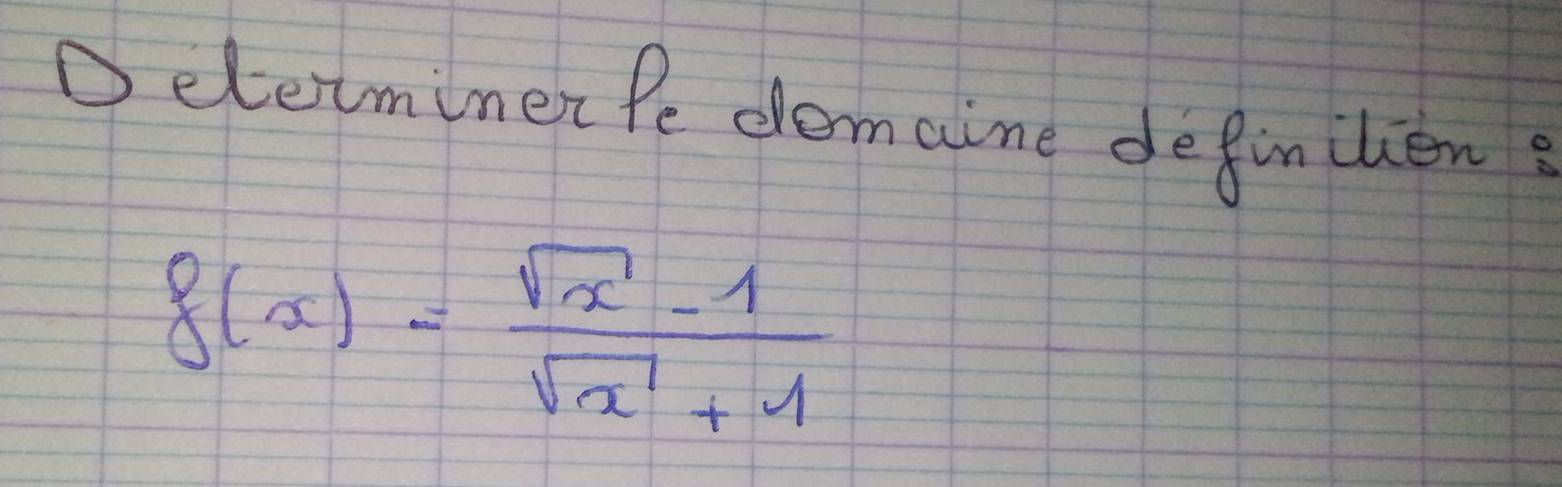 Déterminer le domaine définition :
f(x) = \frac{\sqrt{x} - 1}{\sqrt{x} + 1}